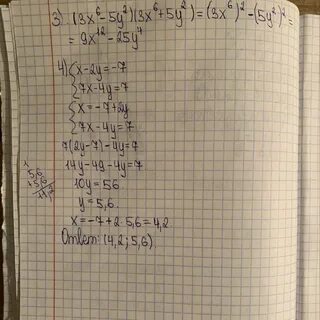 3) (3x⁶-5y²)(3x⁶+5y²)=(3x⁶)²-(5y²)²=
=9x¹²-25y⁴
4) {x-2y=-7
{7x-4y=7
{x=-7+2y
{7x-4y=7
7(2y-7)-4y=7
14y-49-4y=7
10y=56
y=5,6.
x=-7+2·5,6=4,2
Ответ: (4,2; 5,6)
5,6
+5,6